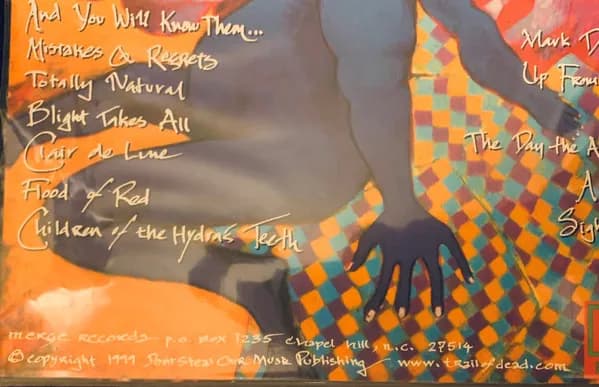 And You Will Know Them...
Mistakes & Regrets
Totally Natural
Blight Takes All
Clair de Lune
Flood of Red
Children of the Hydra's Teeth
Mark
Up From
The Day the A
A
Sigh
merge records p.o. box 1235 chapel hill, n.c. 27514
© copyright 1999 Music Publishing www.trailofdead.com